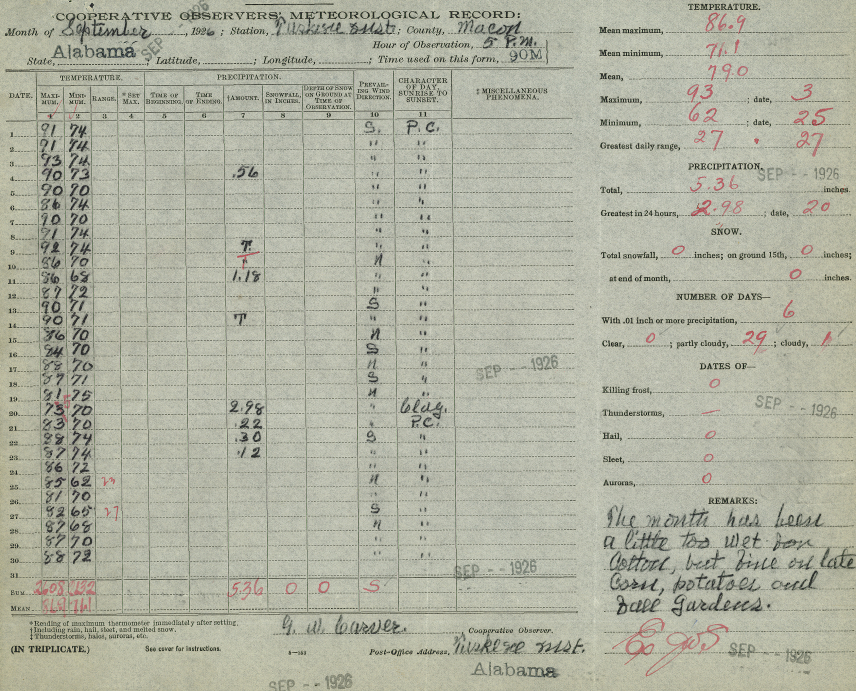 COOPERATIVE OBSERVERS' METEOROLOGICAL RECORD:
Month of September, 1926; Station, Tuskegee Inst.; County, Macon
Hour of Observation, 5 P.M.
State, Alabama; Latitude, ; Longitude, ; Time used on this form, 90M
SEP -- 1926
TEMPERATURE. PRECIPITATION.
DATE. MAXIMUM. MINIMUM. RANGE. *SET MAX. TIME OF BEGINNING. TIME OF ENDING. †AMOUNT. SNOWFALL, IN INCHES. DEPTH OF SNOW ON GROUND AT TIME OF OBSERVATION. PREVAILING WIND DIRECTION. CHARACTER OF DAY, SUNRISE TO SUNSET. ‡MISCELLANEOUS PHENOMENA.
1 2 3 4 5 6 7 8 9 10 11
1 91 74 S. P.C.
2 91 74 " "
3 93 74 " "
4 90 73 .56 " "
5 90 70 " "
6 86 74 " "
7 90 70 " "
8 91 74 " "
9 92 74 T. " "
10 86 70 N "
11 86 68 1.18 " "
12 87 72 " "
13 90 71 S "
14 90 71 T " "
15 86 70 N "
16 84 70 S "
17 88 70 N "
18 87 71 S "
19 81 75 N "
20 75 70 2.98 " Cldy.
21 83 70 .22 " P.C.
22 88 74 .30 S "
23 87 74 .12 " "
24 86 72 " "
25 85 62 23 N "
26 81 70 " "
27 92 65 27 S "
28 87 68 N "
29 87 70 " "
30 88 72 " "
31
SUM 2608 2132 5.36 0 0 S
MEAN
SEP -- 1926
SEP -- 1926
*Reading of maximum thermometer immediately after setting.
†Including rain, hail, sleet, and melted snow.
‡Thunderstorms, halos, auroras, etc.
G. W. Carver. Cooperative Observer.
(IN TRIPLICATE.) See cover for instructions. Post-Office Address, Tuskegee Inst.
Alabama
SEP -- 1926
TEMPERATURE.
Mean maximum, 86.9
Mean minimum, 71.1
Mean, 79.0
Maximum, 93; date, 3
Minimum, 62; date, 25
Greatest daily range, 27 . 27
PRECIPITATION.
SEP -- 1926
Total, 5.36 inches.
Greatest in 24 hours, 2.98; date, 20
SNOW.
Total snowfall, 0 inches; on ground 15th, 0 inches;
at end of month, 0 inches.
NUMBER OF DAYS—
With .01 inch or more precipitation, 6
Clear, 0; partly cloudy, 29; cloudy, 1
DATES OF—
Killing frost, 0
SEP -- 1926
Thunderstorms, —
Hail, 0
Sleet, 0
Auroras, 0
REMARKS:
The month has been
a little too wet for
Cotton, but fine on late
Corn, potatoes and
Fall Gardens.
SEP -- 1926